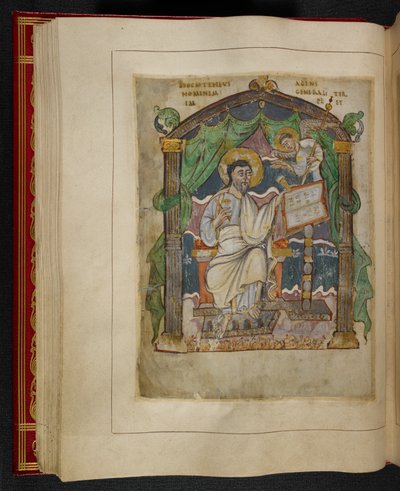 HOC MATHEUS AGENS
HOMINEM GENERALI TER
IM PL ET